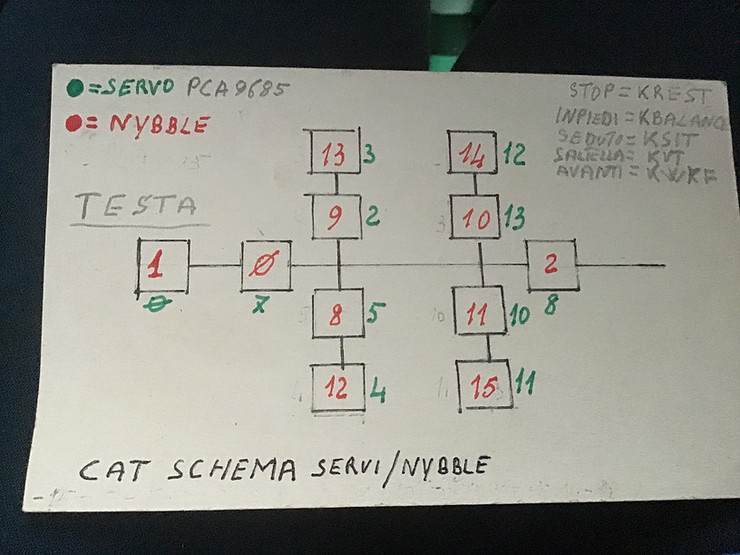 =SERVO PCA9685
= NYBBLE
STOP = KREST
INPIEDI = KBALANCE
SEDUTO = KSIT
SALTELLA = KVT
AVANTI = KWKF
TESTA
13 3
14 12
9 2
10 13
1
Ø
2
0
7
8
8 5
11 10
12 4
15 11
CAT SCHEMA SERVI/NYBBLE